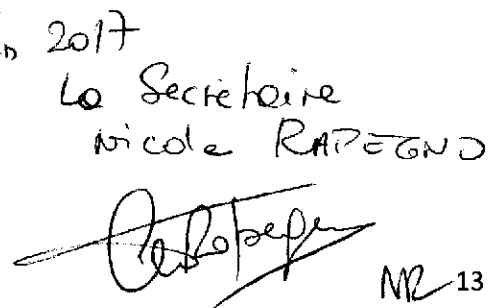 2017
La Secrétaire
Nicole RAPEGNO
NR 13